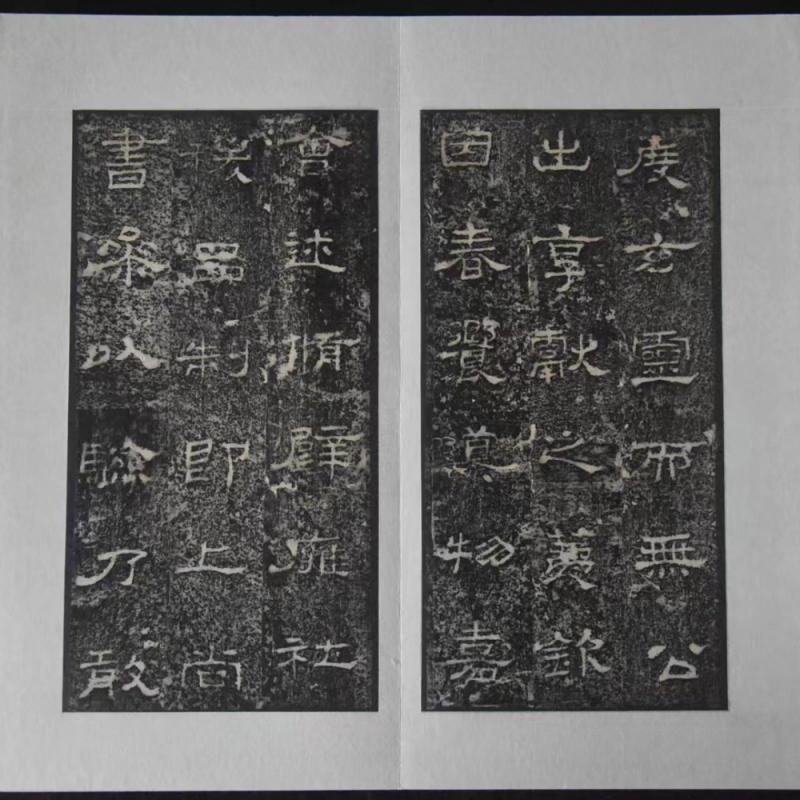 度玄靈而無公
出享獻之薦欽
因春饗導物嘉
會述脩辟雍社
稷品制即上尚
書叅以驗乃敢